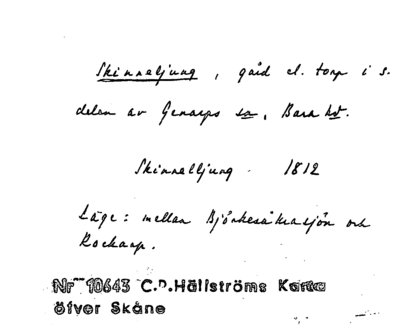 Skinneljung, gård el. torp i s.
delen av Genarps sn, Bara hd.
Skinnelljung. 1812
Läge: mellan Björkesåkrasjön och
Rockarp.
Nr 10643 C.D.Hällströms Karta
öfver Skåne